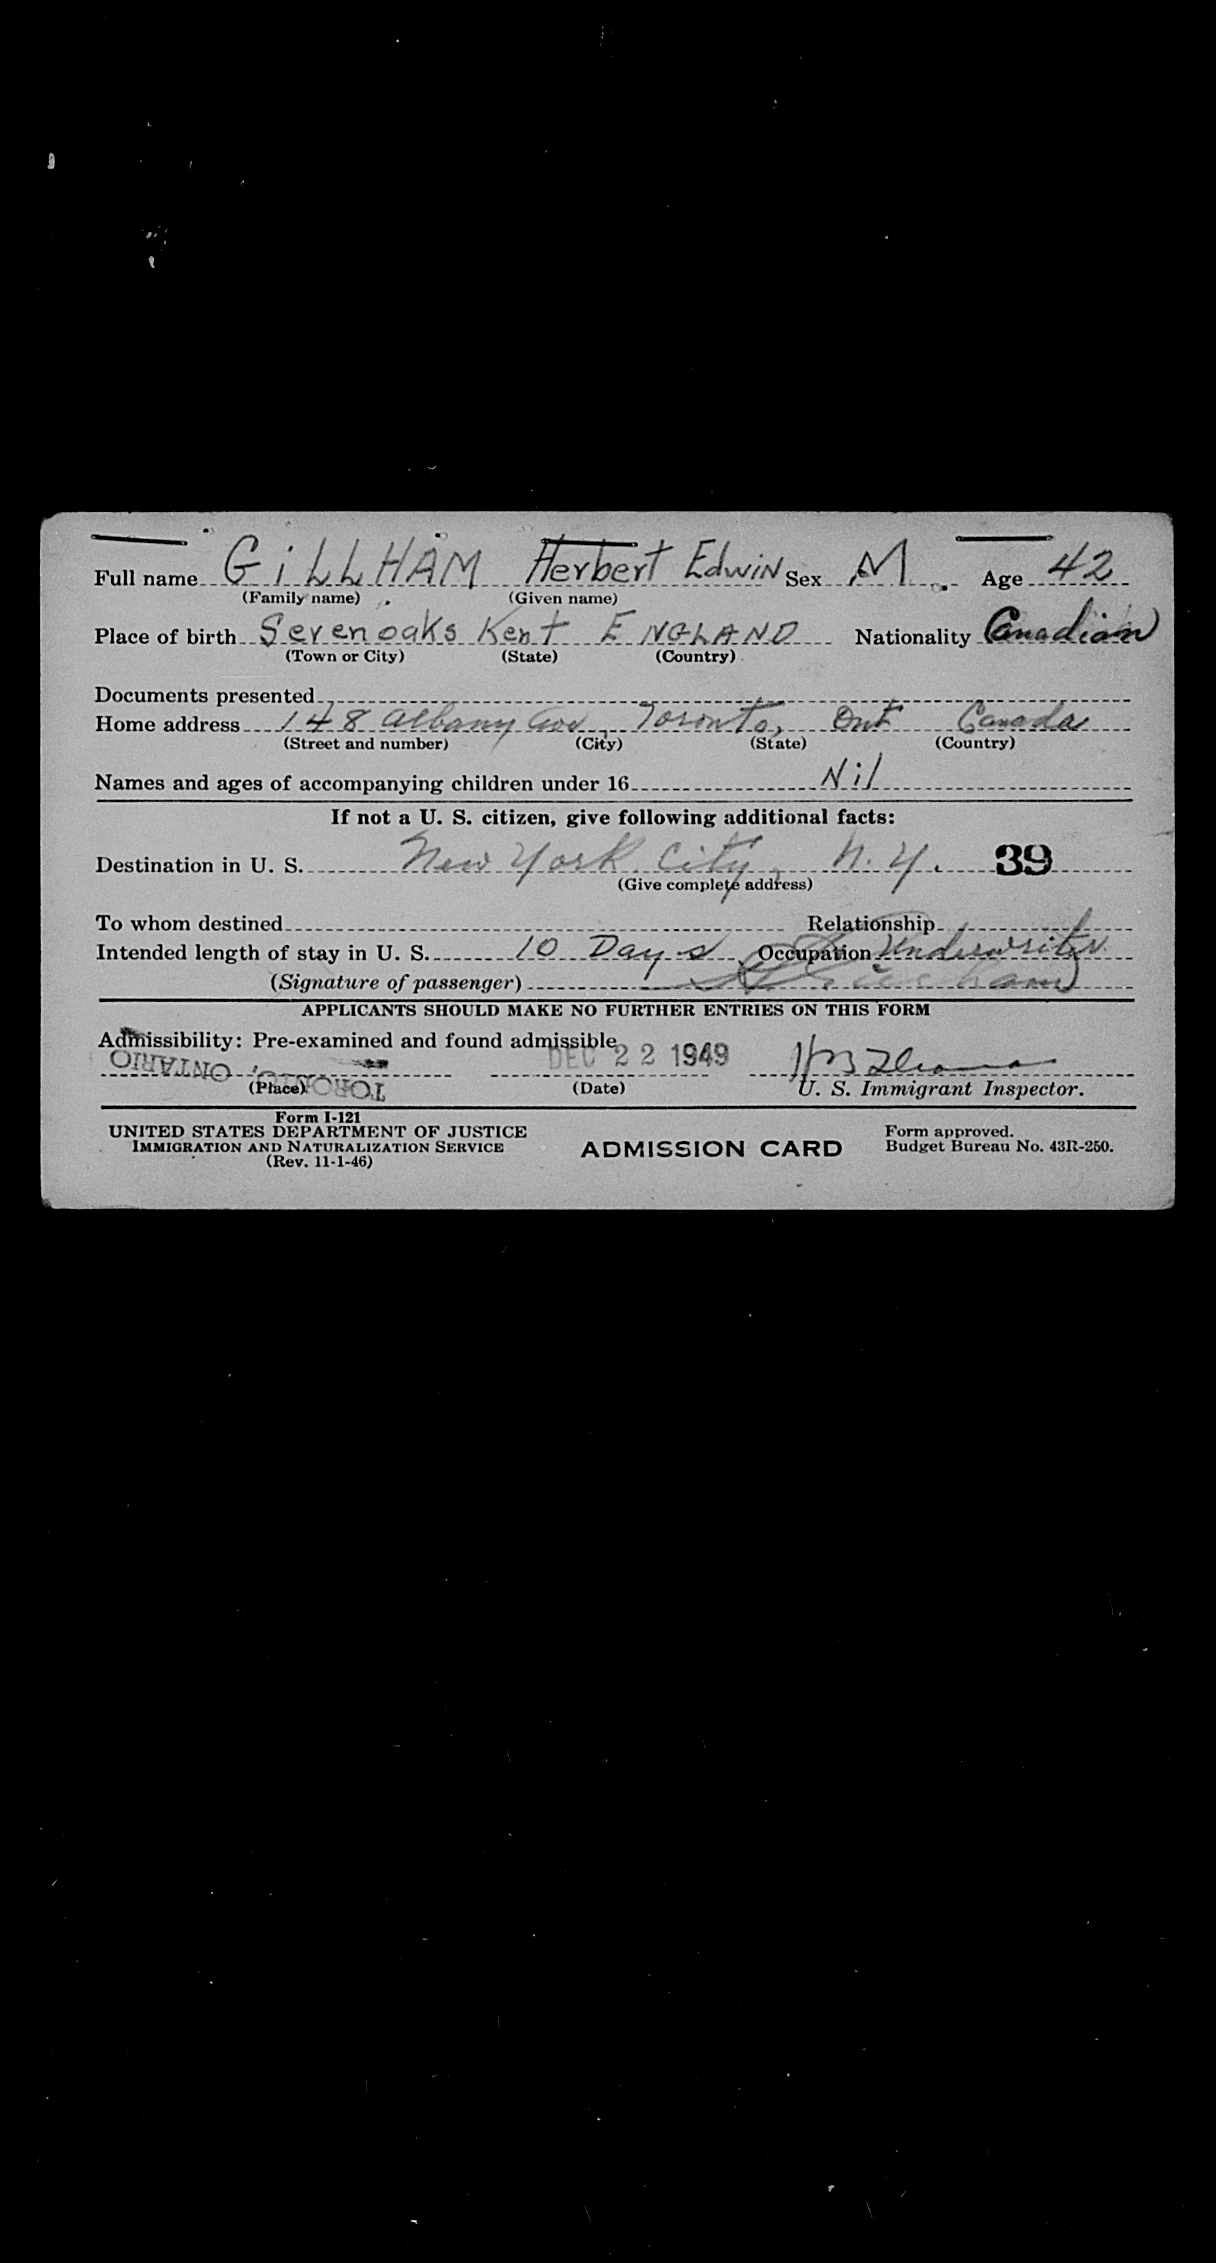 Full name GiLLHAM Herbert Edwin Sex M. Age 42
(Family name) (Given name)
Place of birth Sevenoaks Kent ENGLAND Nationality Canadian
(Town or City) (State) (Country)
Documents presented
Home address 148 Albany Ave, Toronto, Ont Canada
(Street and number) (City) (State) (Country)
Names and ages of accompanying children under 16 Nil
If not a U. S. citizen, give following additional facts:
Destination in U. S. New York City, N.Y. 39
(Give complete address)
To whom destined Relationship
Intended length of stay in U. S. 10 Days Occupation Underwriter
(Signature of passenger)
APPLICANTS SHOULD MAKE NO FURTHER ENTRIES ON THIS FORM
Admissibility: Pre-examined and found admissible
TORONTO, ONTARIO DEC 22 1949
(Place) (Date) U. S. Immigrant Inspector.
Form I-121
UNITED STATES DEPARTMENT OF JUSTICE
IMMIGRATION AND NATURALIZATION SERVICE
(Rev. 11-1-46)
ADMISSION CARD
Form approved.
Budget Bureau No. 43R-250.